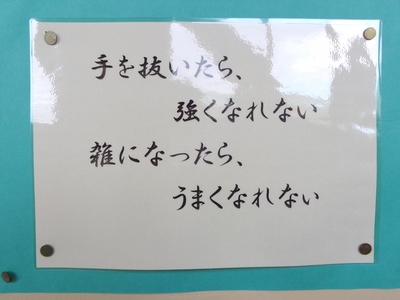 手を抜いたら、
強くなれない
雑になったら、
うまくなれない